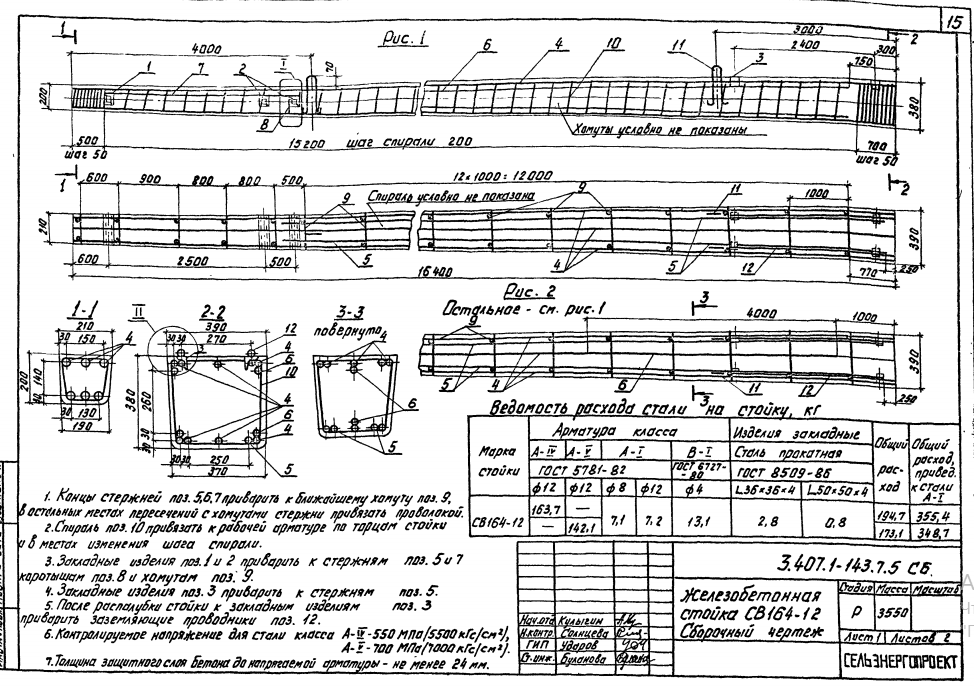 15
Рис. 1
1 2
4000 3000
2400
300
750
70
1 7 2 I 6 4 10 11 3
200 380
8
Хомуты условно не показаны
500 15200 шаг спирали 200 700
шаг 50 шаг 50
1 2
600 900 800 800 500 12×1000=12000
1000
Спираль условно не показана
9 9 11
210 390
600 2500 500 5 4 5 12
770 250
16400
Рис. 2
Остальное - см. рис. 1
3
4000 1000
9
390
5 4 6 11 12
250
3
1-1
210
30 150
4
200 140
30 130
190
II
2-2
390
30 30 270
12
3
4
6
10
380 260
4
6
4
30
30 30 250
370
5
3-3
повернуто
4
6
5
Ведомость расхода стали на стойку, кг
Марка стойки
Арматура класса
Изделия закладные
Общий расход
Общий расход, привед. к стали А-I
А-IV А-V А-I В-I
Сталь прокатная
ГОСТ 5781-82 ГОСТ 6727-80 ГОСТ 8509-86
ф12 ф12 ф8 ф12 ф4 L36×36×4 L50×50×4
СВ164-12
163,7 — 7,1 7,2 13,1 2,8 0,8 194,7 355,4
— 142,1 173,1 348,7
1. Концы стержней поз. 5,6,7 приварить к ближайшему хомуту поз. 9,
в остальных местах пересечений с хомутами стержни привязать проволокой.
2. Спираль поз. 10 привязать к рабочей арматуре по торцам стойки
и в местах изменения шага спирали.
3. Закладные изделия поз. 1 и 2 приварить к стержням поз. 5 и 7
коротышам поз. 8 и хомутам поз. 9.
4. Закладные изделия поз. 3 приварить к стержням поз. 5.
5. После распалубки стойки к закладным изделиям поз. 3
приварить заземляющие проводники поз. 12.
6. Контролируемое напряжение для стали класса А-IV-550 МПа (5500 кГс/см²),
А-V-700 МПа (7000 кГс/см²).
7. Толщина защитного слоя бетона до напрягаемой арматуры - не менее 24 мм.
3.407.1-143.7.5 СБ.
Железобетонная
стойка СВ164-12
Сборочный чертеж
Стадия Масса Масштаб
Р 3550
Лист 1 Листов 2
СЕЛЬЭНЕРГОПРОЕКТ
Нач.отд Кулыгин
Н.контр. Солнцева
ГИП Ударов
Ст.инж. Буланова